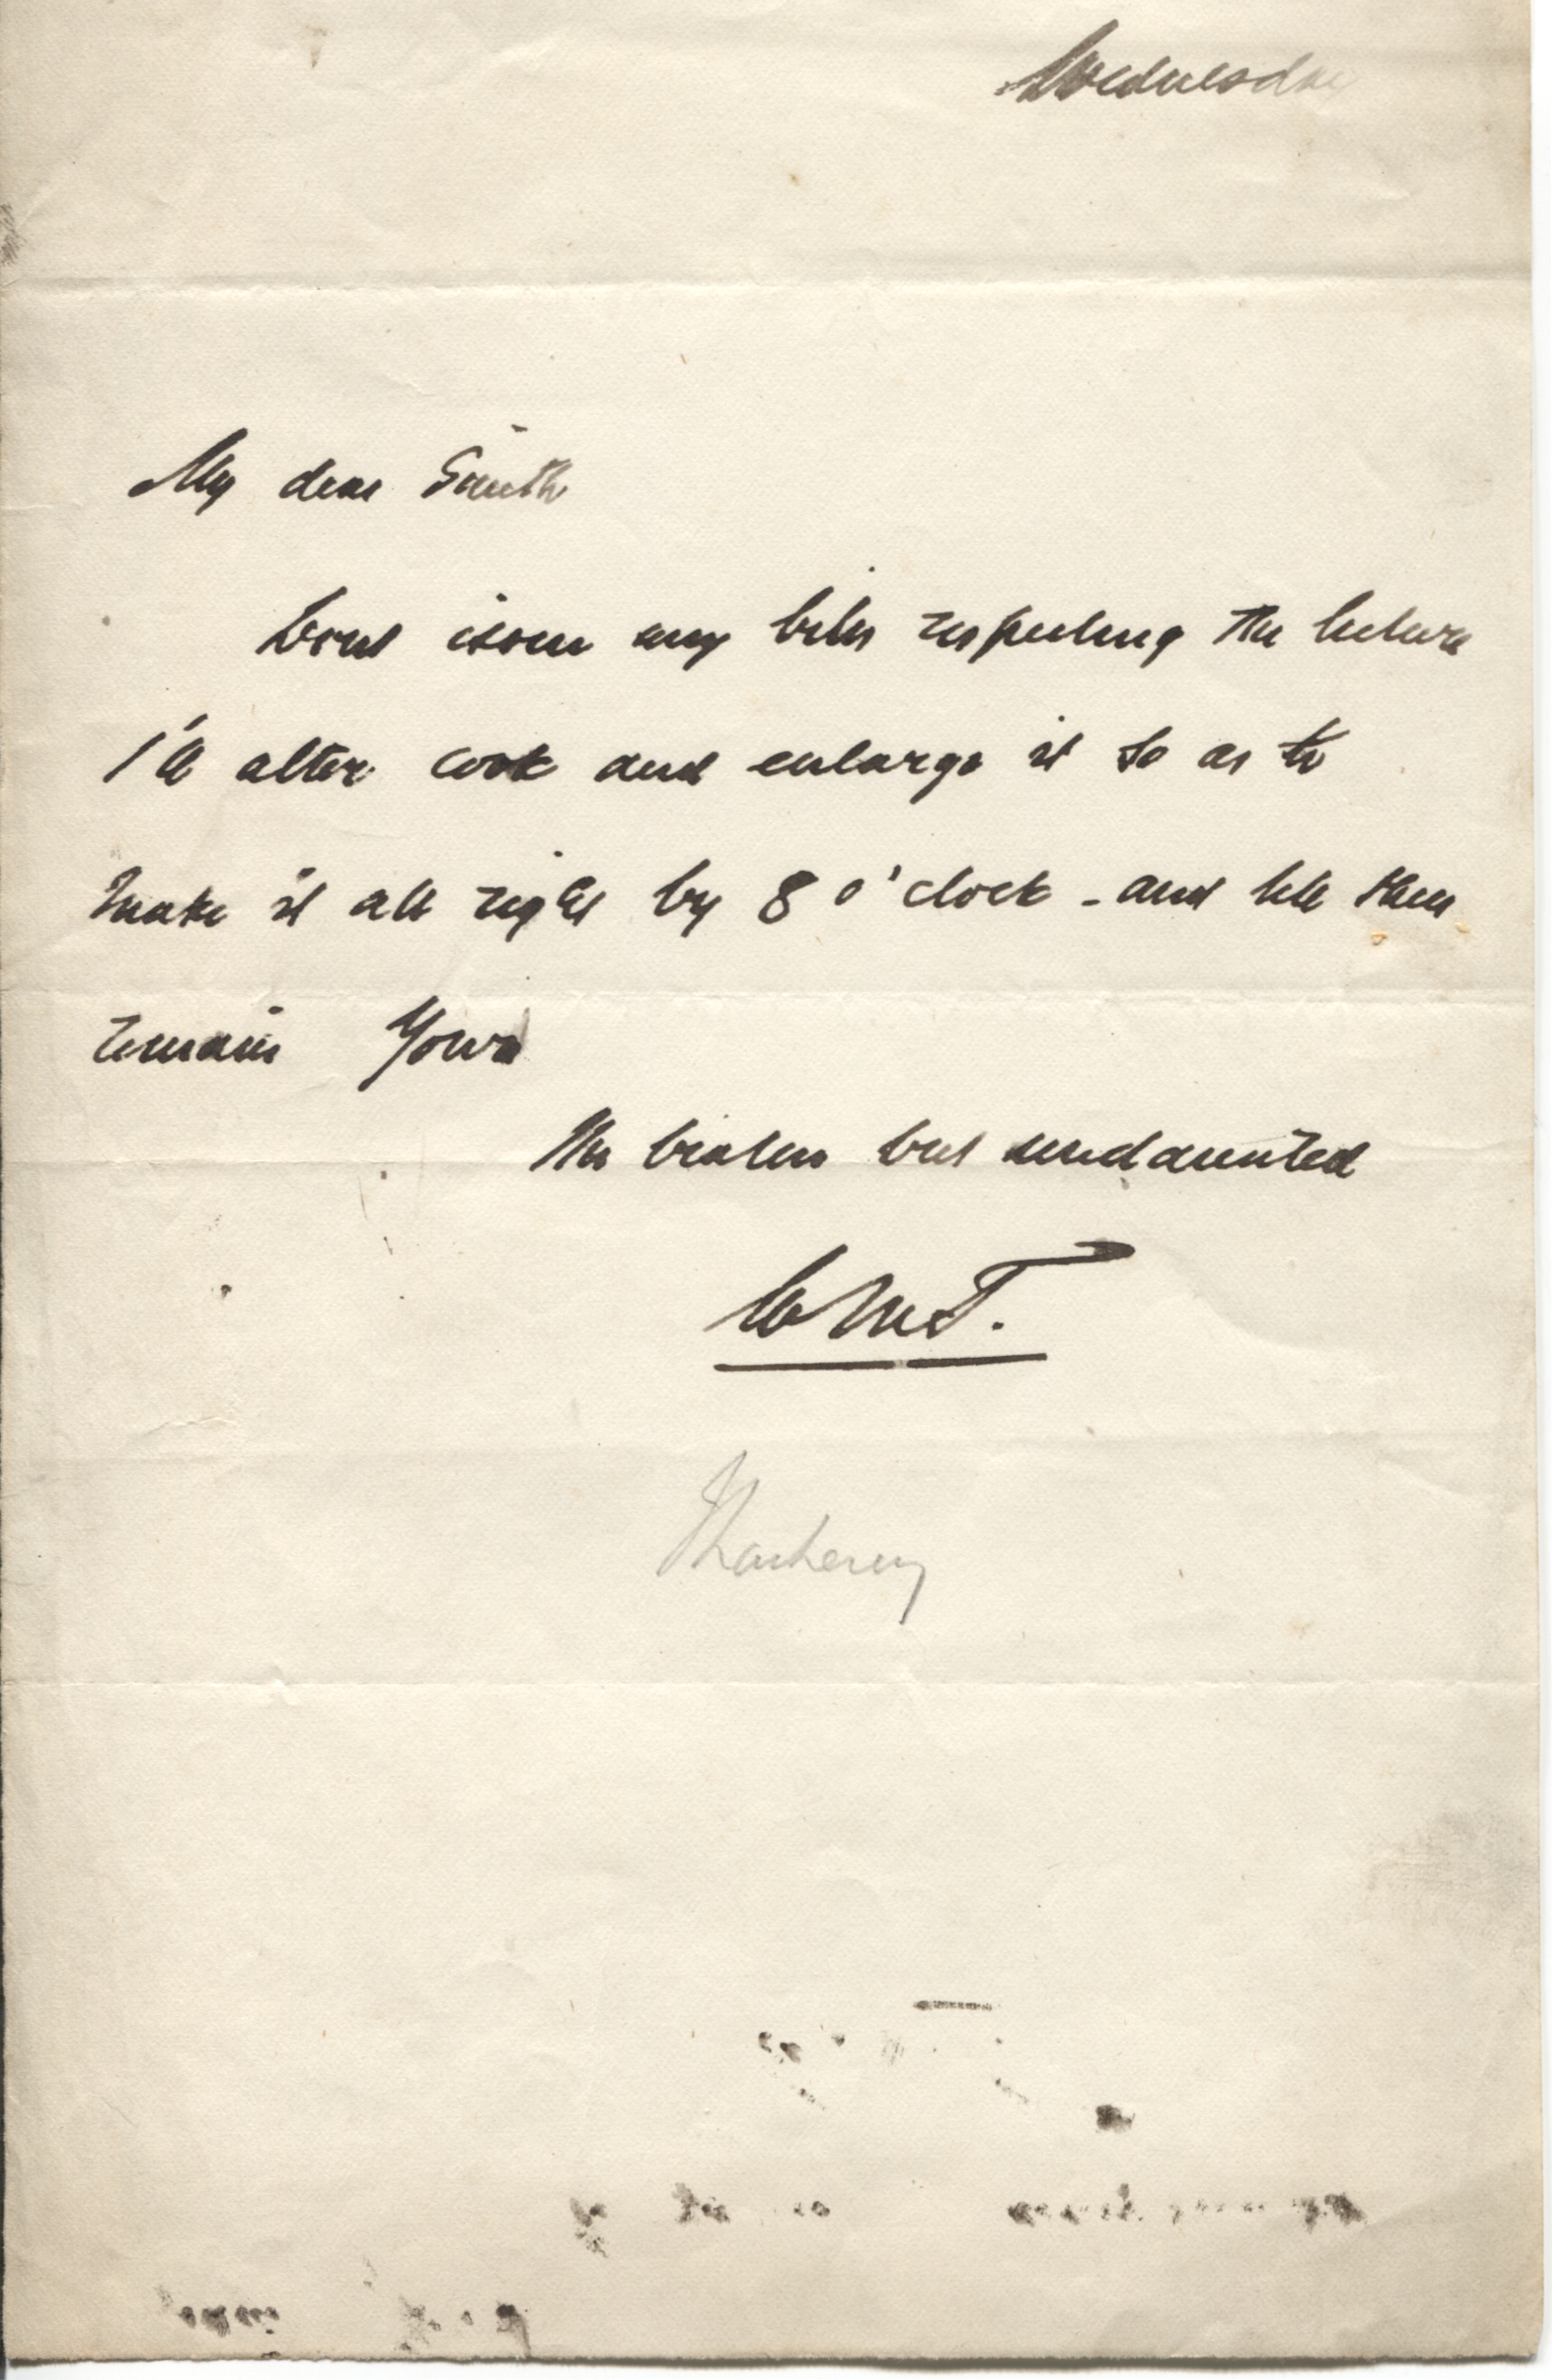 Wednesday
My dear Smith
Dont issue any bills respecting the lecture
I'll alter cook and enlarge it so as to
make it all right by 8 o'clock - and till then
remain Yours
The beaten but undaunted
WMT.
Thackeray